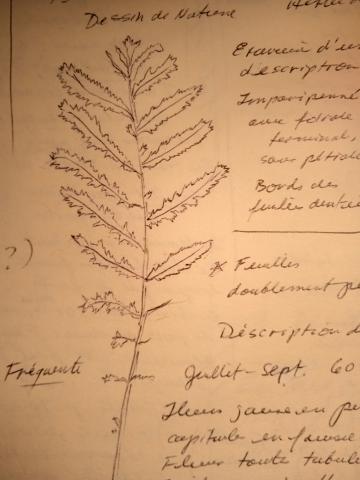 Dessin de Nature
d'un
description
Imparipenn
avec foliole
terminal,
sans pétiole
Bords des
feuilles dentée
?)
* Feuilles
doublement pe
Déscription d
Fréquente
Juillet-Sept. 60
Fleurs jaune en pe
capitule en fausse
Fleur toute tubule